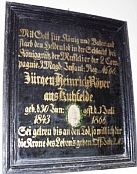 Mit Gott für König und Vaterland
starb den Heldentod in der Schlacht bei
Königgrätz der Musketier der 2. Com-
pagnie 1. Magd. Infant. Reg. No. 26
Jürgen Heinrich Röper
aus Kuhfelde
geb. d. 30. Juni gest. d. 3. Juli
1843 1866
Sei getreu bis an den Tod, so will ich dir
die Krone des Lebens geben. Off. Joh. 2.